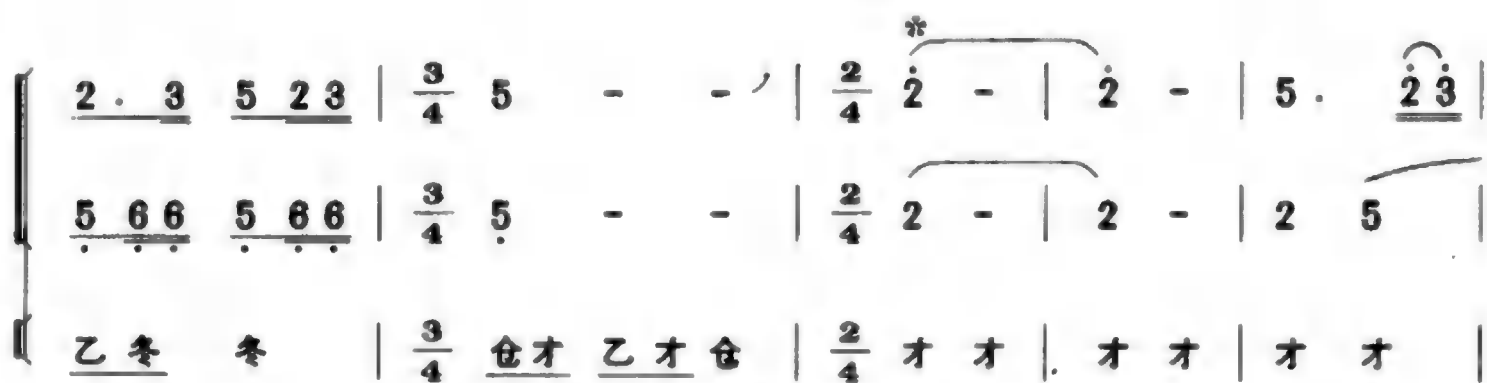 ※
2 . 3 5 2 3 | 3/4 5 - - , | 2/4 2̇ - | 2̇ - | 5 . 2̇ 3̇ |
5̣ 6̣ 6̣ 5̣ 6̣ 6̣ | 3/4 5̣ - - | 2/4 2 - | 2 - | 2 5 |
乙 冬 冬 | 3/4 仓 才 乙 才 仓 | 2/4 才 才 | 才 才 | 才 才 |